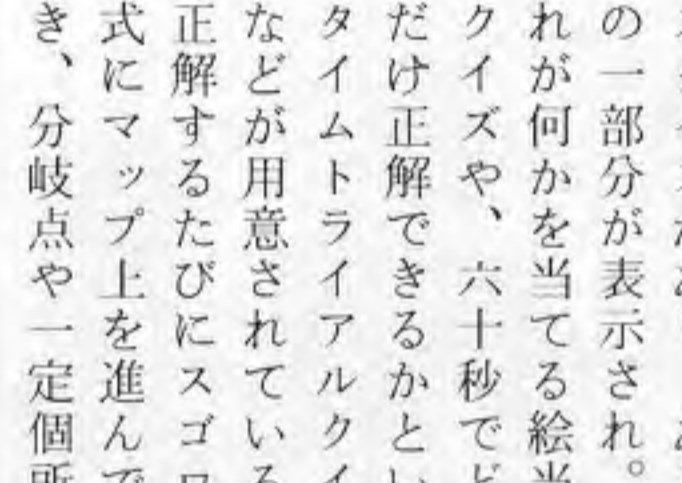 の一部分が表示され。
れが何かを当てる絵
クイズや、六十秒で
だけ正解できるかと
タイムトライアルク
などが用意されてい
正解するたびにスゴ
式にマップ上を進ん
き、分岐点や一定個